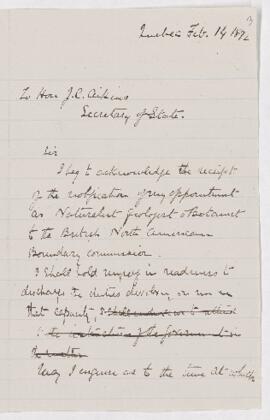 3
Quebec Feb. 14 1872
To Hon J.C. Aikins
Secretary of State.
Sir
I beg to acknowledge the receipt
of the notification of my appointment
as Naturalist Geologist & Botanist
to the British North American
Boundary Commission.
I shall hold myself in readiness to
discharge the duties devolving on me in
that capacity,
the instructions of the Government on
the matter
May I enquire as to the time at which